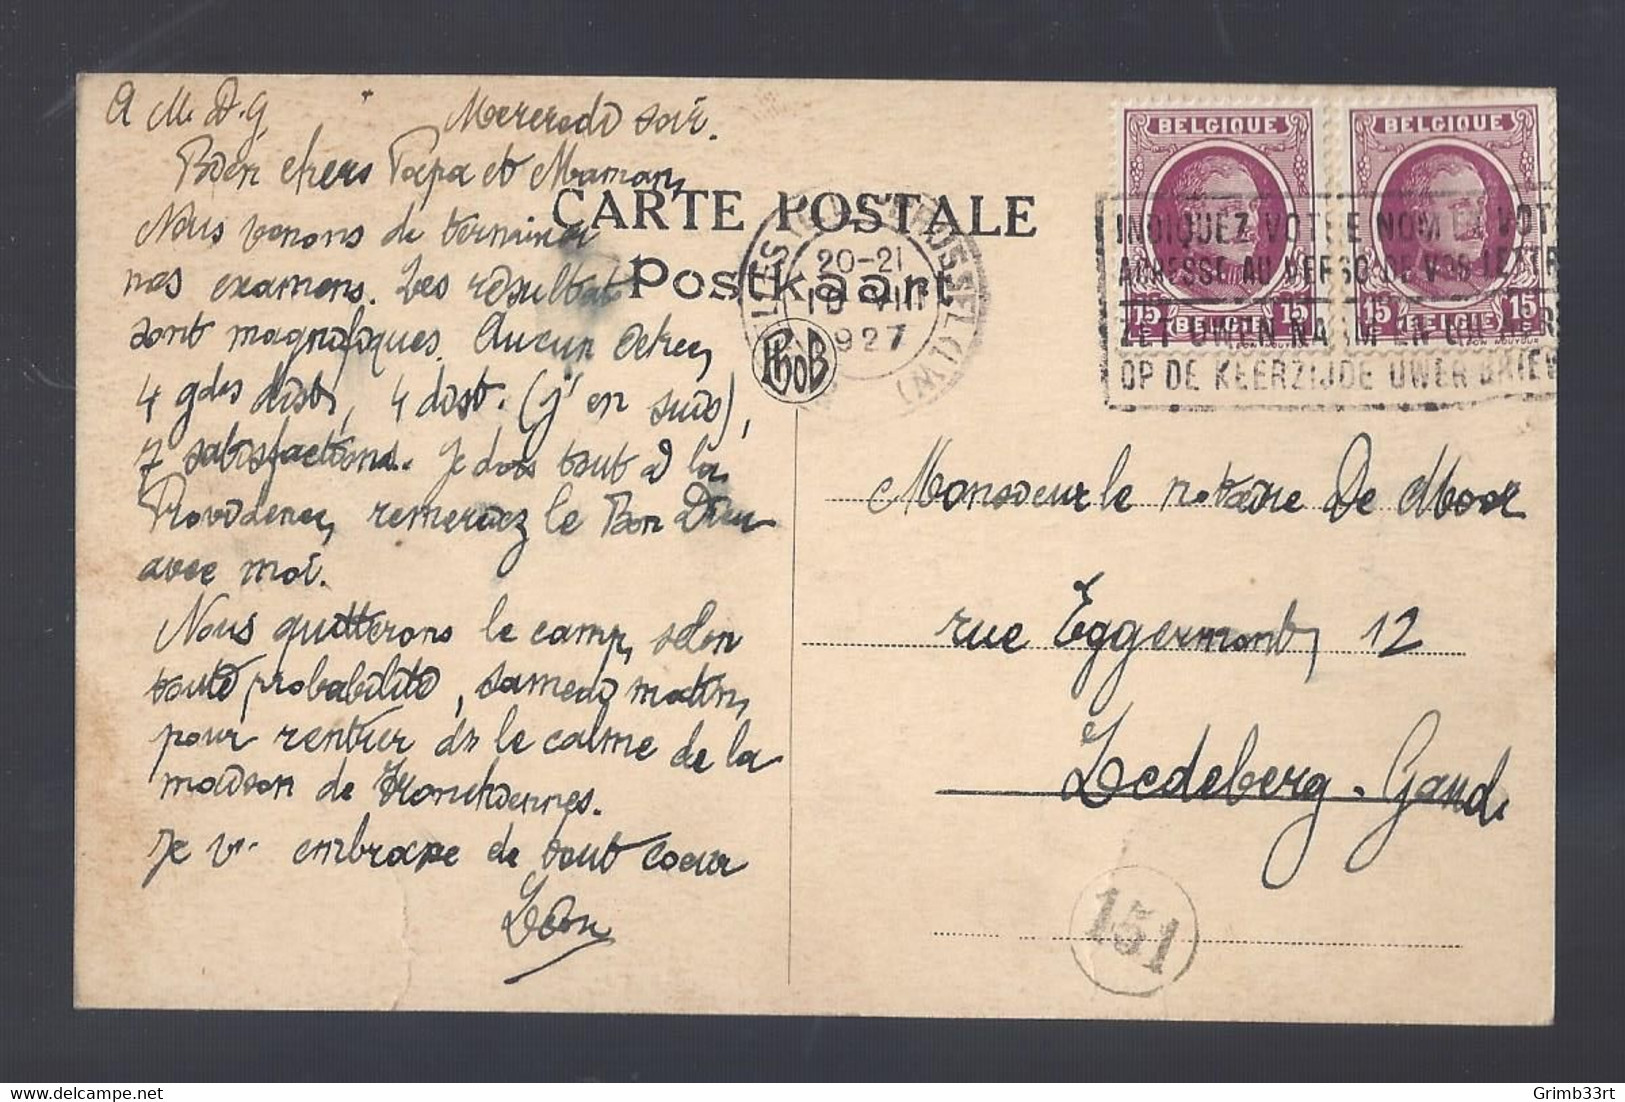 A. M. D. G. Mercredi soir.
Bien chers Papa et Maman,
Nous venons de terminer
nos examens. Les résultats
sont magnifiques. Aucun échec,
4 gdes dist, 4 dist. (j'en suis),
7 satisfactions. Je dois tout à la
Providence, remerciez le Bon Dieu
avec moi.
Nous quitterons le camp, selon
toute probabilité, samedi matin,
pour rentrer ds le calme de la
maison de Tronchiennes.
Je v. embrasse de tout coeur
Léon
CARTE POSTALE
Postkaart
20-21
1927
BRUSSEL
BELGIQUE BELGIQUE
15 BELGIË 15 15 BELGIË 15
INDIQUEZ VOTRE NOM ET VOT
ADRESSE AU VERSO DE VOS LETTR
ZET UWEN NAAM EN UW ADRE
OP DE KEERZIJDE UWER BRIEV
Monsieur le notaire De Moor
rue Eggermont, 12
Ledeberg-Gand.
151
Grimb33rt